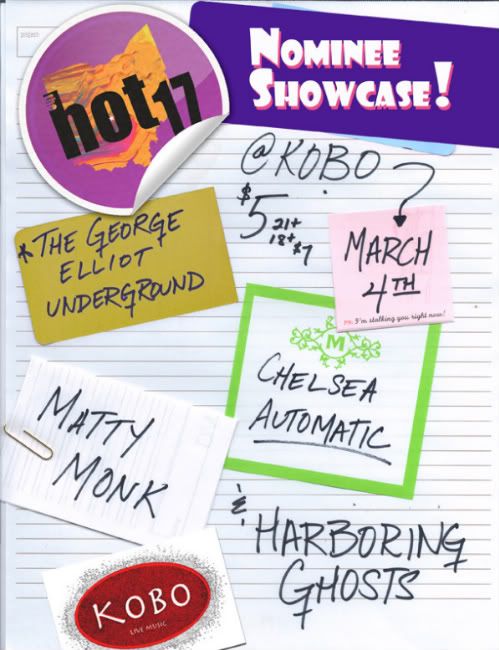 project:
the hot17
NOMINEE
SHOWCASE!
@KOBO
$5 21+
18+ $7
MARCH
4TH
PS: I'm stalking you right now!
*THE GEORGE
ELLIOT
UNDERGROUND
M
CHELSEA
AUTOMATIC
MATTY
MONK
& HARBORING
GHOSTS
KOBO
LIVE MUSIC